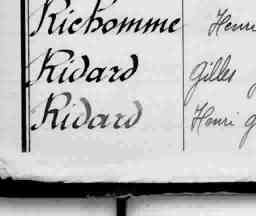 Richomme Henri
Ridard Gilles
Ridard Henri G